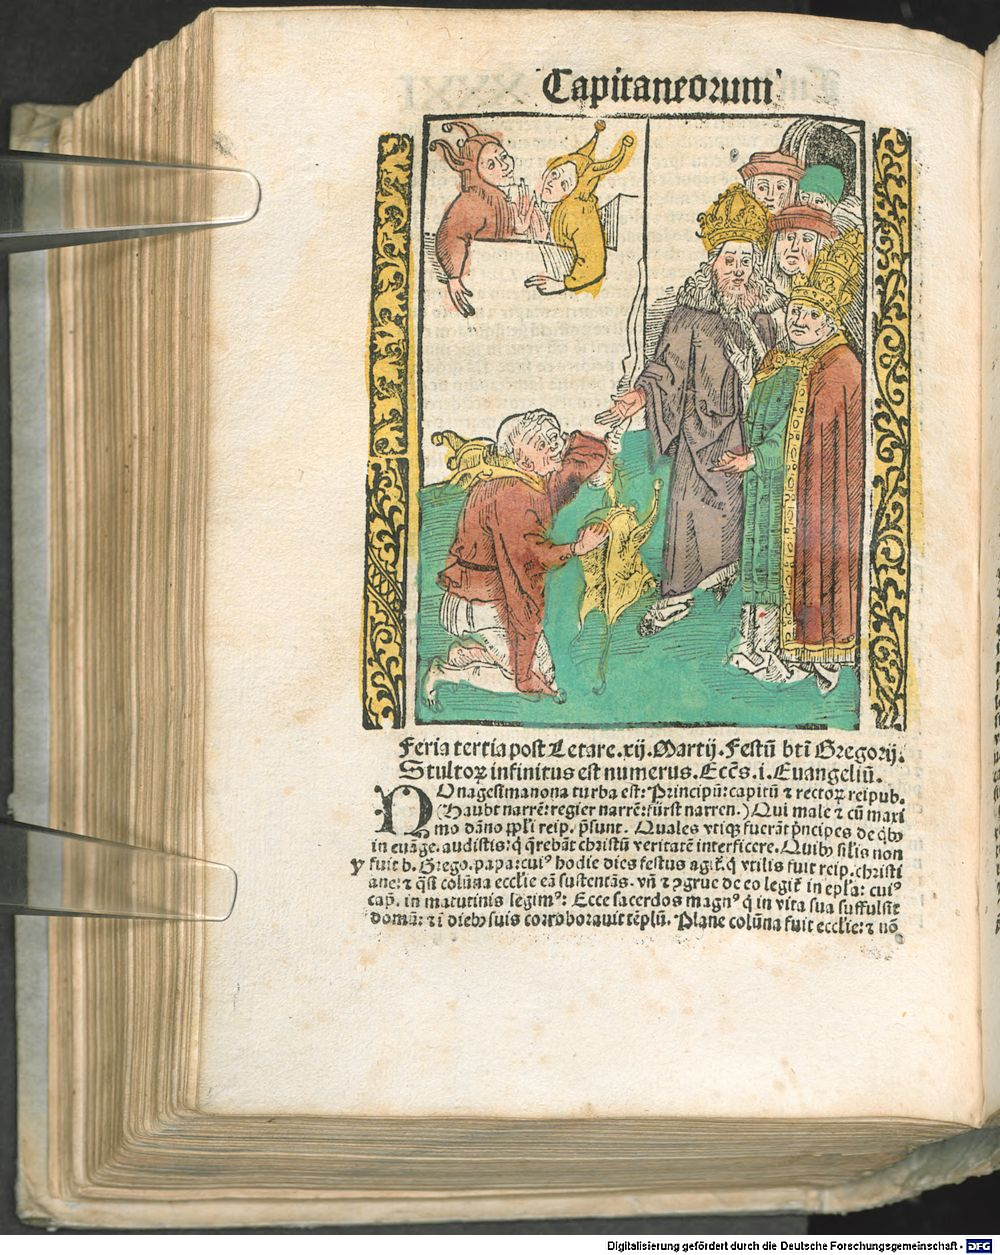 Capitaneorum
Feria tertia post Letare. xij. Martij. Festū bti Gregorij.
Stultoꝝ infinitus est numerus. Eccēs. i. Euangeliū.
NOnagesimanona turba est: Principū: capitū ⁊ rectoꝝ reipub.
(Haubt narrē: regier narrē: fürst narren.) Qui male ⁊ cū maxi
mo dāno ꝓpl'i reip. p̄sunt. Quales vtiqꝫ fuerāt p̄ncipes de qͥbꝰ
in euāge. audistis: q̇ q̄rebāt christū veritatē interficere. Quibꝰ silis non
y fuit b. Grego. papa: cuiꝰ hodie dies festus agit̄. q̇ vtilis fuit reip. christi
ane: ⁊ q̄si colūna ecclie eā sustentās. vn̄ ⁊ ꝯgrue de eo legit̄ in epl'a: cuiꝰ
cap. in matutinis legimꝰ: Ecce sacerdos magnꝰ q̇ in vita sua suffulsit
domū: ⁊ ī diebꝰ suis corroborauit tēplū. Plane colūna fuit ecclie: ⁊ nō
Digitalisierung gefördert durch die Deutsche Forschungsgemeinschaft - DFG